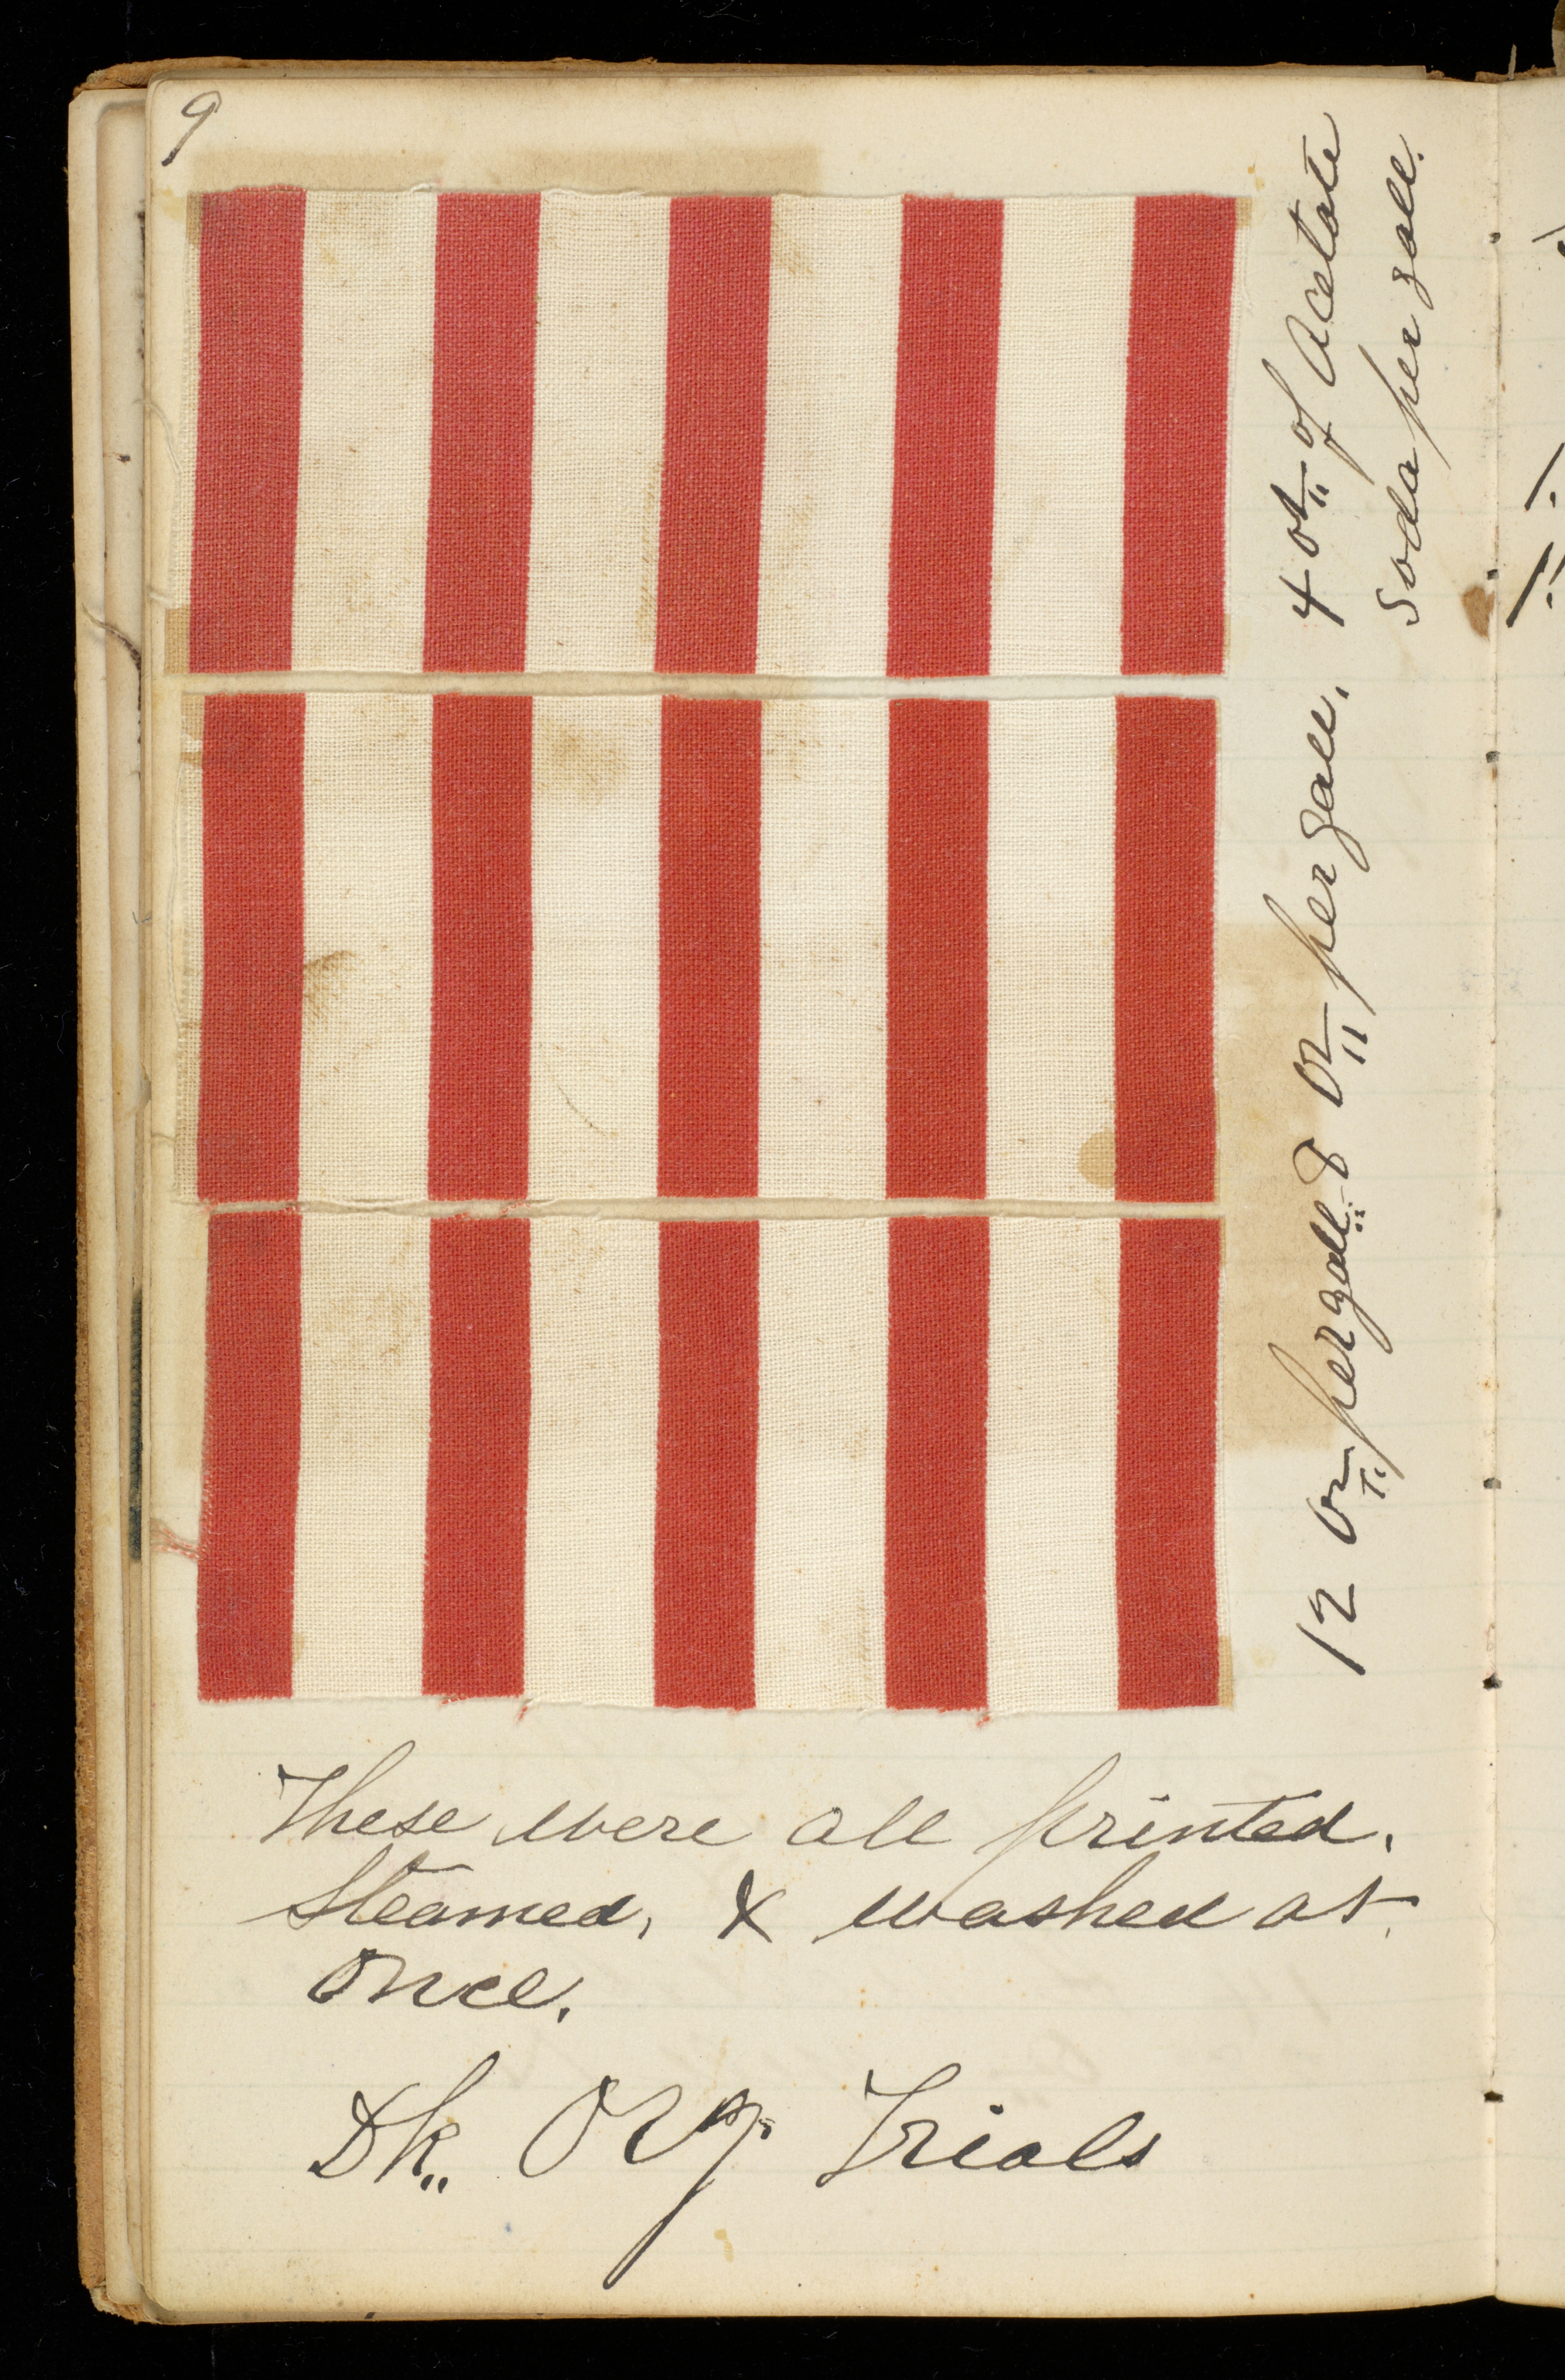 9
4 oz of Acetate
Soda per gall.
8 oz per gall.
12 oz per gall
These were all printed,
Steamed, & washed at
once.
Dk. Org. Trials